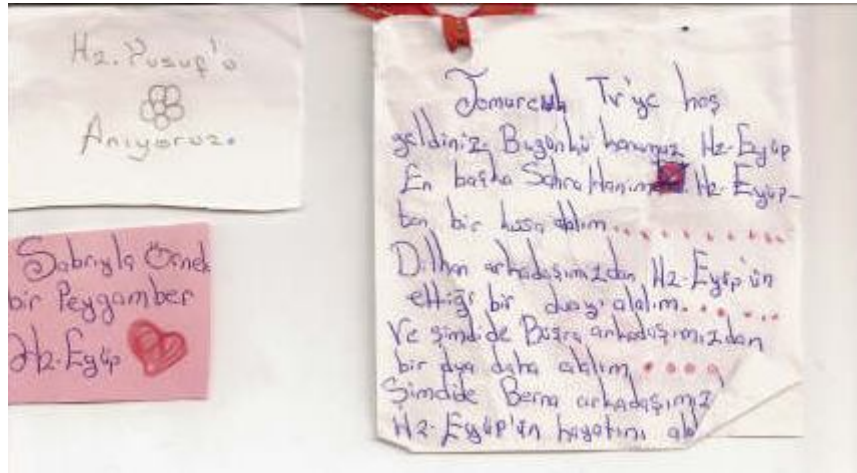 Hz. Yusuf'u
Anıyoruz.
Sabrıyla Örnek
bir Peygamber
Hz. Eyüp
Tomurcuk Tv'ye hoş
geldiniz. Bugünkü konumuz Hz. Eyüp
En başka Sahra Hanım Hz. Eyüp-
ten bir kıssa alalım........
Dilhan arkadaşımızdan Hz. Eyüp'ün
ettiği bir duayı alalım......
Ve şimdide Büşra arkadaşımızdan
bir dua daha alalım....
Şimdide Berna arkadaşımız
Hz. Eyüp'ün hayatını